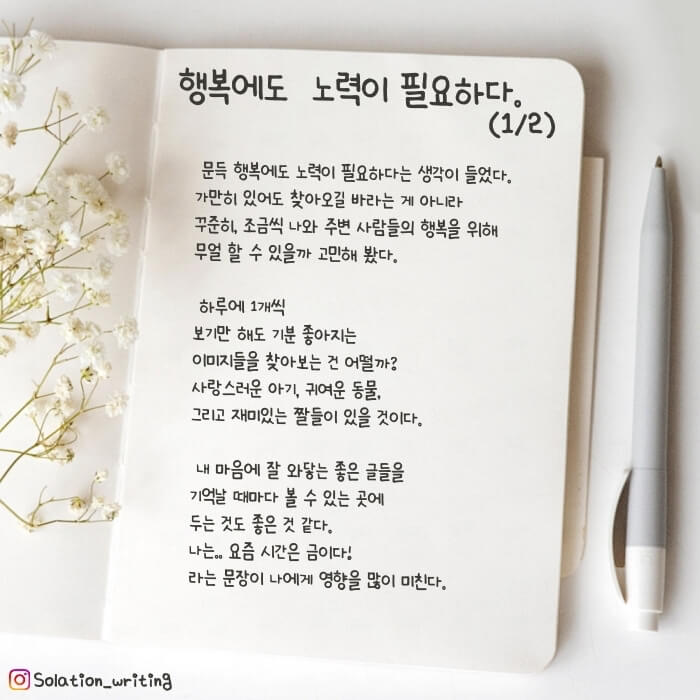 행복에도 노력이 필요하다.
(1/2)
문득 행복에도 노력이 필요하다는 생각이 들었다.
가만히 있어도 찾아오길 바라는 게 아니라
꾸준히, 조금씩 나와 주변 사람들의 행복을 위해
무얼 할 수 있을까 고민해 봤다.
하루에 1개씩
보기만 해도 기분 좋아지는
이미지들을 찾아보는 건 어떨까?
사랑스러운 아기, 귀여운 동물,
그리고 재미있는 짤들이 있을 것이다.
내 마음에 잘 와닿는 좋은 글들을
기억날 때마다 볼 수 있는 곳에
두는 것도 좋은 것 같다.
나는.. 요즘 시간은 금이다!
라는 문장이 나에게 영향을 많이 미친다.
Solation_writing